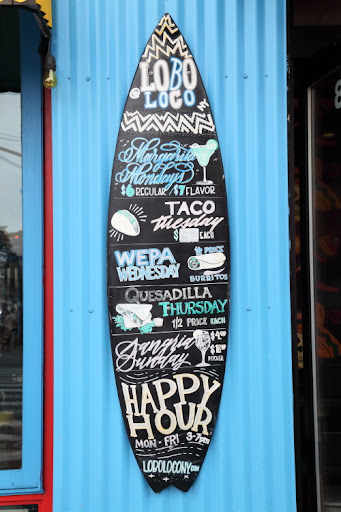 @ LOBO
LOCO NY
Margarita
Mondays
$6 REGULAR/$7 FLAVOR
TACO
tuesday
$ EACH
WEPA
WEDNESDAY
1/2 PRICE
BURRITOS
QUESADILLA
THURSDAY
1/2 PRICE EACH
Sangria
Sunday
PITCHER
HAPPY
HOUR
MON - FRI 3-7pm
LOBOLOCONY.com